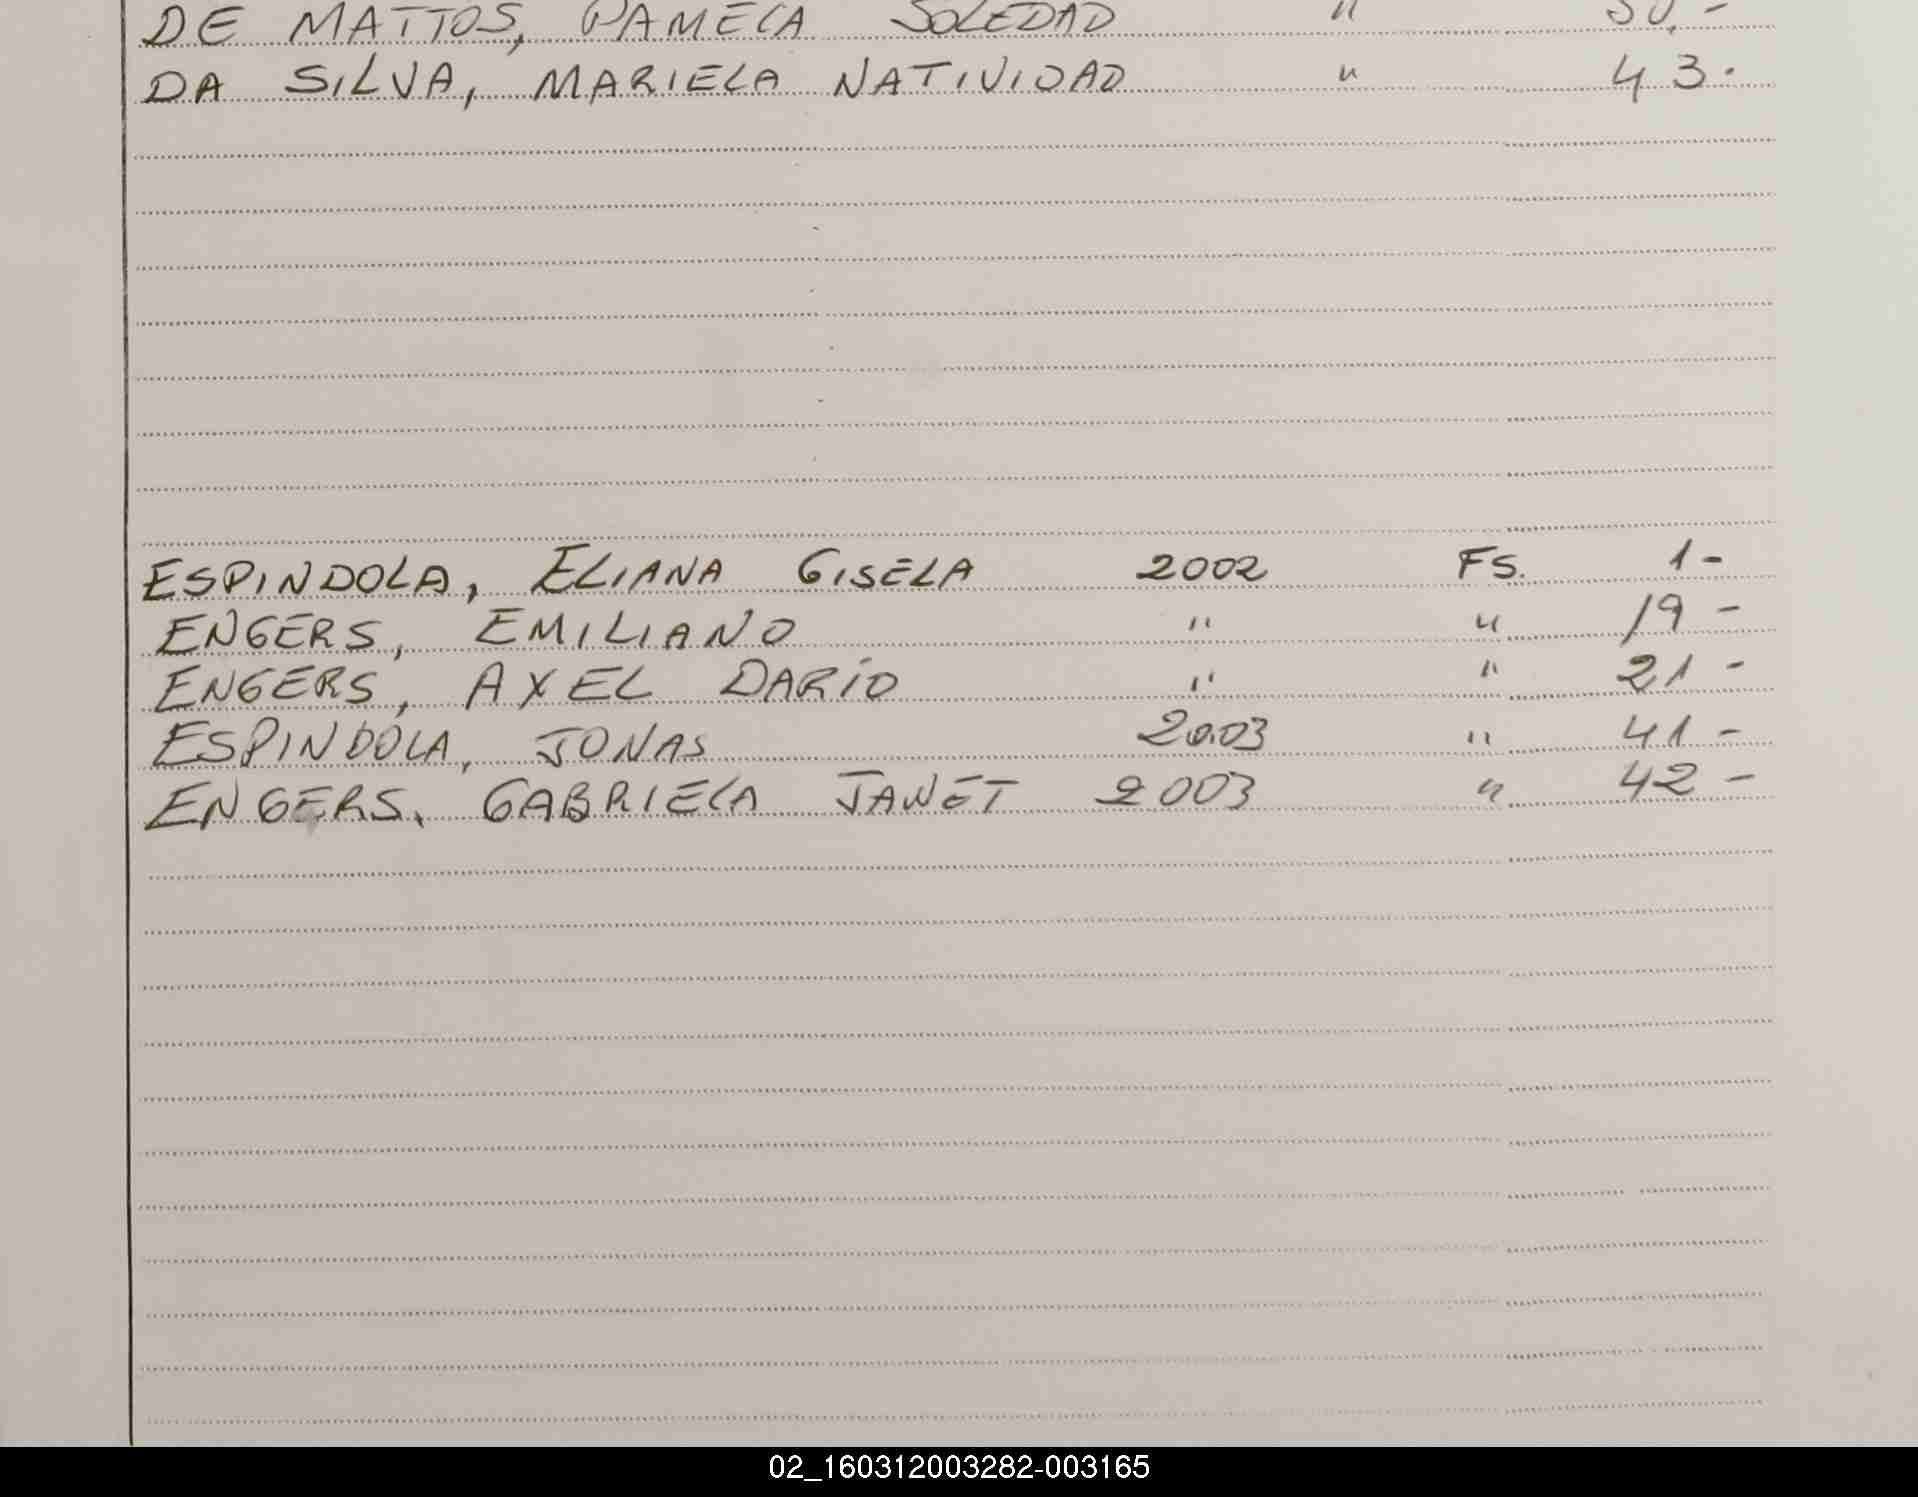 DE MATTOS, PAMELA SOLEDAD " 30.-
DA SILVA, MARIELA NATIVIDAD " 43.
ESPINDOLA, ELIANA GISELA 2002 FS. 1-
ENGERS, EMILIANO " " 19-
ENGERS, AXEL DARÍO " " 21-
ESPINDOLA, JONAS 2003 " 41-
ENGERS, GABRIELA JANET 2003 " 42-
02_160312003282-003165